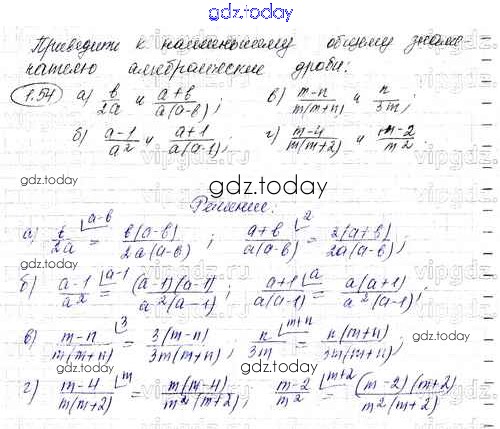 gdz.today
Приведите к наименьшему общему знаме-
нателю алгебраические дроби:
1.54 а) b/2a и (a+b)/(a(a-b)); в) (m-n)/(m(m+n)) и n/3m;
б) (a-1)/a² и (a+1)/(a(a-1)); г) (m-4)/(m(m+2)) и (m-2)/m²
gdz.today
Решение:
а) b/2a ⌞a-b = b(a-b)/(2a(a-b)); (a+b)/(a(a-b)) ⌞2 = 2(a+b)/(2a(a-b));
б) (a-1)/a² ⌞a-1 = (a-1)(a-1)/(a²(a-1)); (a+1)/(a(a-1)) ⌞a = a(a+1)/(a²(a-1));
в) (m-n)/(m(m+n)) ⌞3 = 3(m-n)/(3m(m+n)); n/3m ⌞m+n = n(m+n)/(3m(m+n));
г) (m-4)/(m(m+2)) ⌞m = m(m-4)/(m²(m+2)); (m-2)/m² ⌞m+2 = (m-2)(m+2)/(m²(m+2))
gdz.today